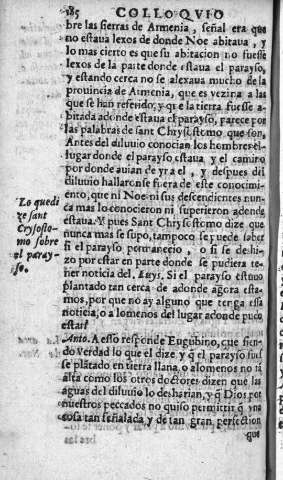 185 COLLOQVIO
bre las sierras de Armenia, señal era que
no estaua lexos de donde Noe abitaua, y
lo mas cierto es que su abitacion no fuesse
lexos de la parte donde estaua el parayso,
y estando cerca no se alexaua mucho de la
prouincia de Armenia, que es vezina a las
que se han referido, y que la tierra fuesse a-
bitada adonde estaua el parayso, parece por
las palabras de sant Chrysostomo que son,
Antes del diluuio conocian los hombres el
lugar donde el parayso estaua y el camino
por donde auian de yr a el, y despues del
diluuio hallaronse fuera de este conocimi-
ento, que ni Noe ni sus descendientes nun-
ca mas lo conocieron ni supieron adende
estaua. Y pues Sant Chrysostomo dize que
nunca mas se supo, tampoco se puede saber
si el parayso permanecio, o si se deshi-
zo por estar en parte donde se pudiera te-
ner noticia del. Luys. Si el parayso estuuo
plantado tan cerca de adonde agora esta-
mos, por que no ay alguno que tenga essa
noticia, o a lomenos del lugar adonde pudo
estar?
Anto. A esso responde Eugubino, que sien-
do verdad lo que el dize, y q̃ el parayso fuesse
se plãtado en tierra llana, o alomenos no tã
alta como los otros doctores dizen que las
aguas del diluuio lo desharian, y q̃ Dios por
nuestros peccados no quiso permitir q̃ vna
cosa tan señalada y de tan gran perfection
que
Lo que di
ze sant
Crysosto-
mo sobre
el paray-
so.